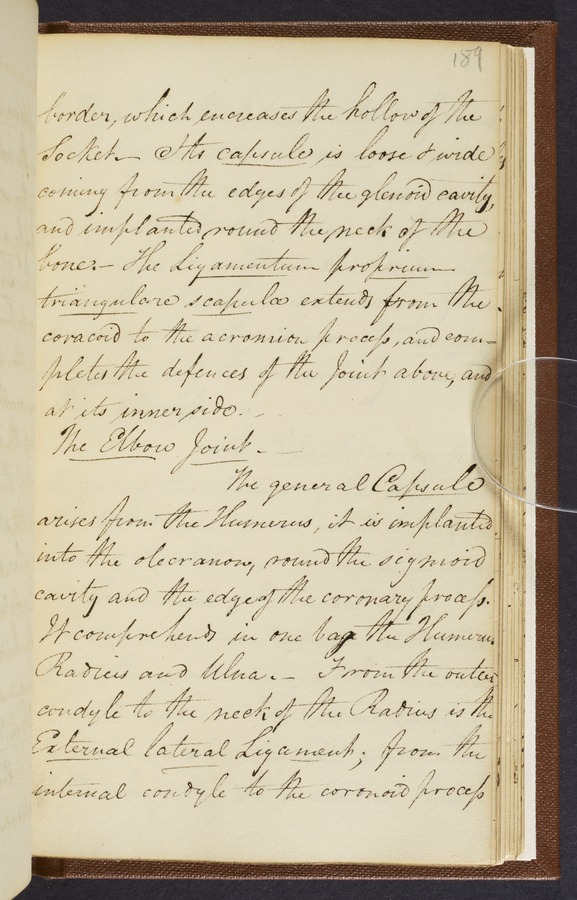 189
border, which encreases the hollow of the
Socket.— Its capsule is loose & wide
coming from the edges of the glenoid cavity,
and implanted round the neck of the
bone.— The Ligamentum proprium
triangulare scapulæ extends from the
coracoid to the acromion process, and com-
pletes the defences of the Joint above, and
at its inner side.—
The Elbow Joint.—
The general Capsule
arises from the Humerus, it is implanted
into the olecranon, round the sigmoid
cavity and the edge of the coronary process.
It comprehends in one bag the Humerus
Radius and Ulna.— From the outer
condyle to the neck of the Radius is the
External lateral Ligament; from the
internal condyle to the coronoid process